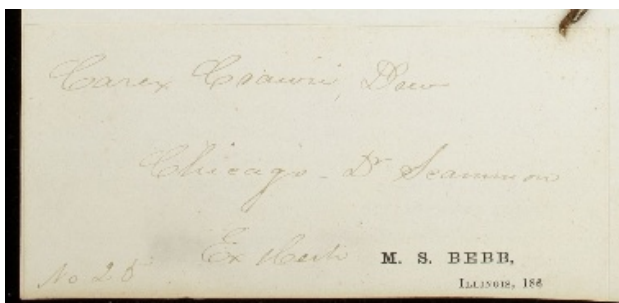 Carex Crawei, Dew
Chicago - Dr Scammon
Ex Herb M. S. BEBB,
No 25 ILLINOIS, 186